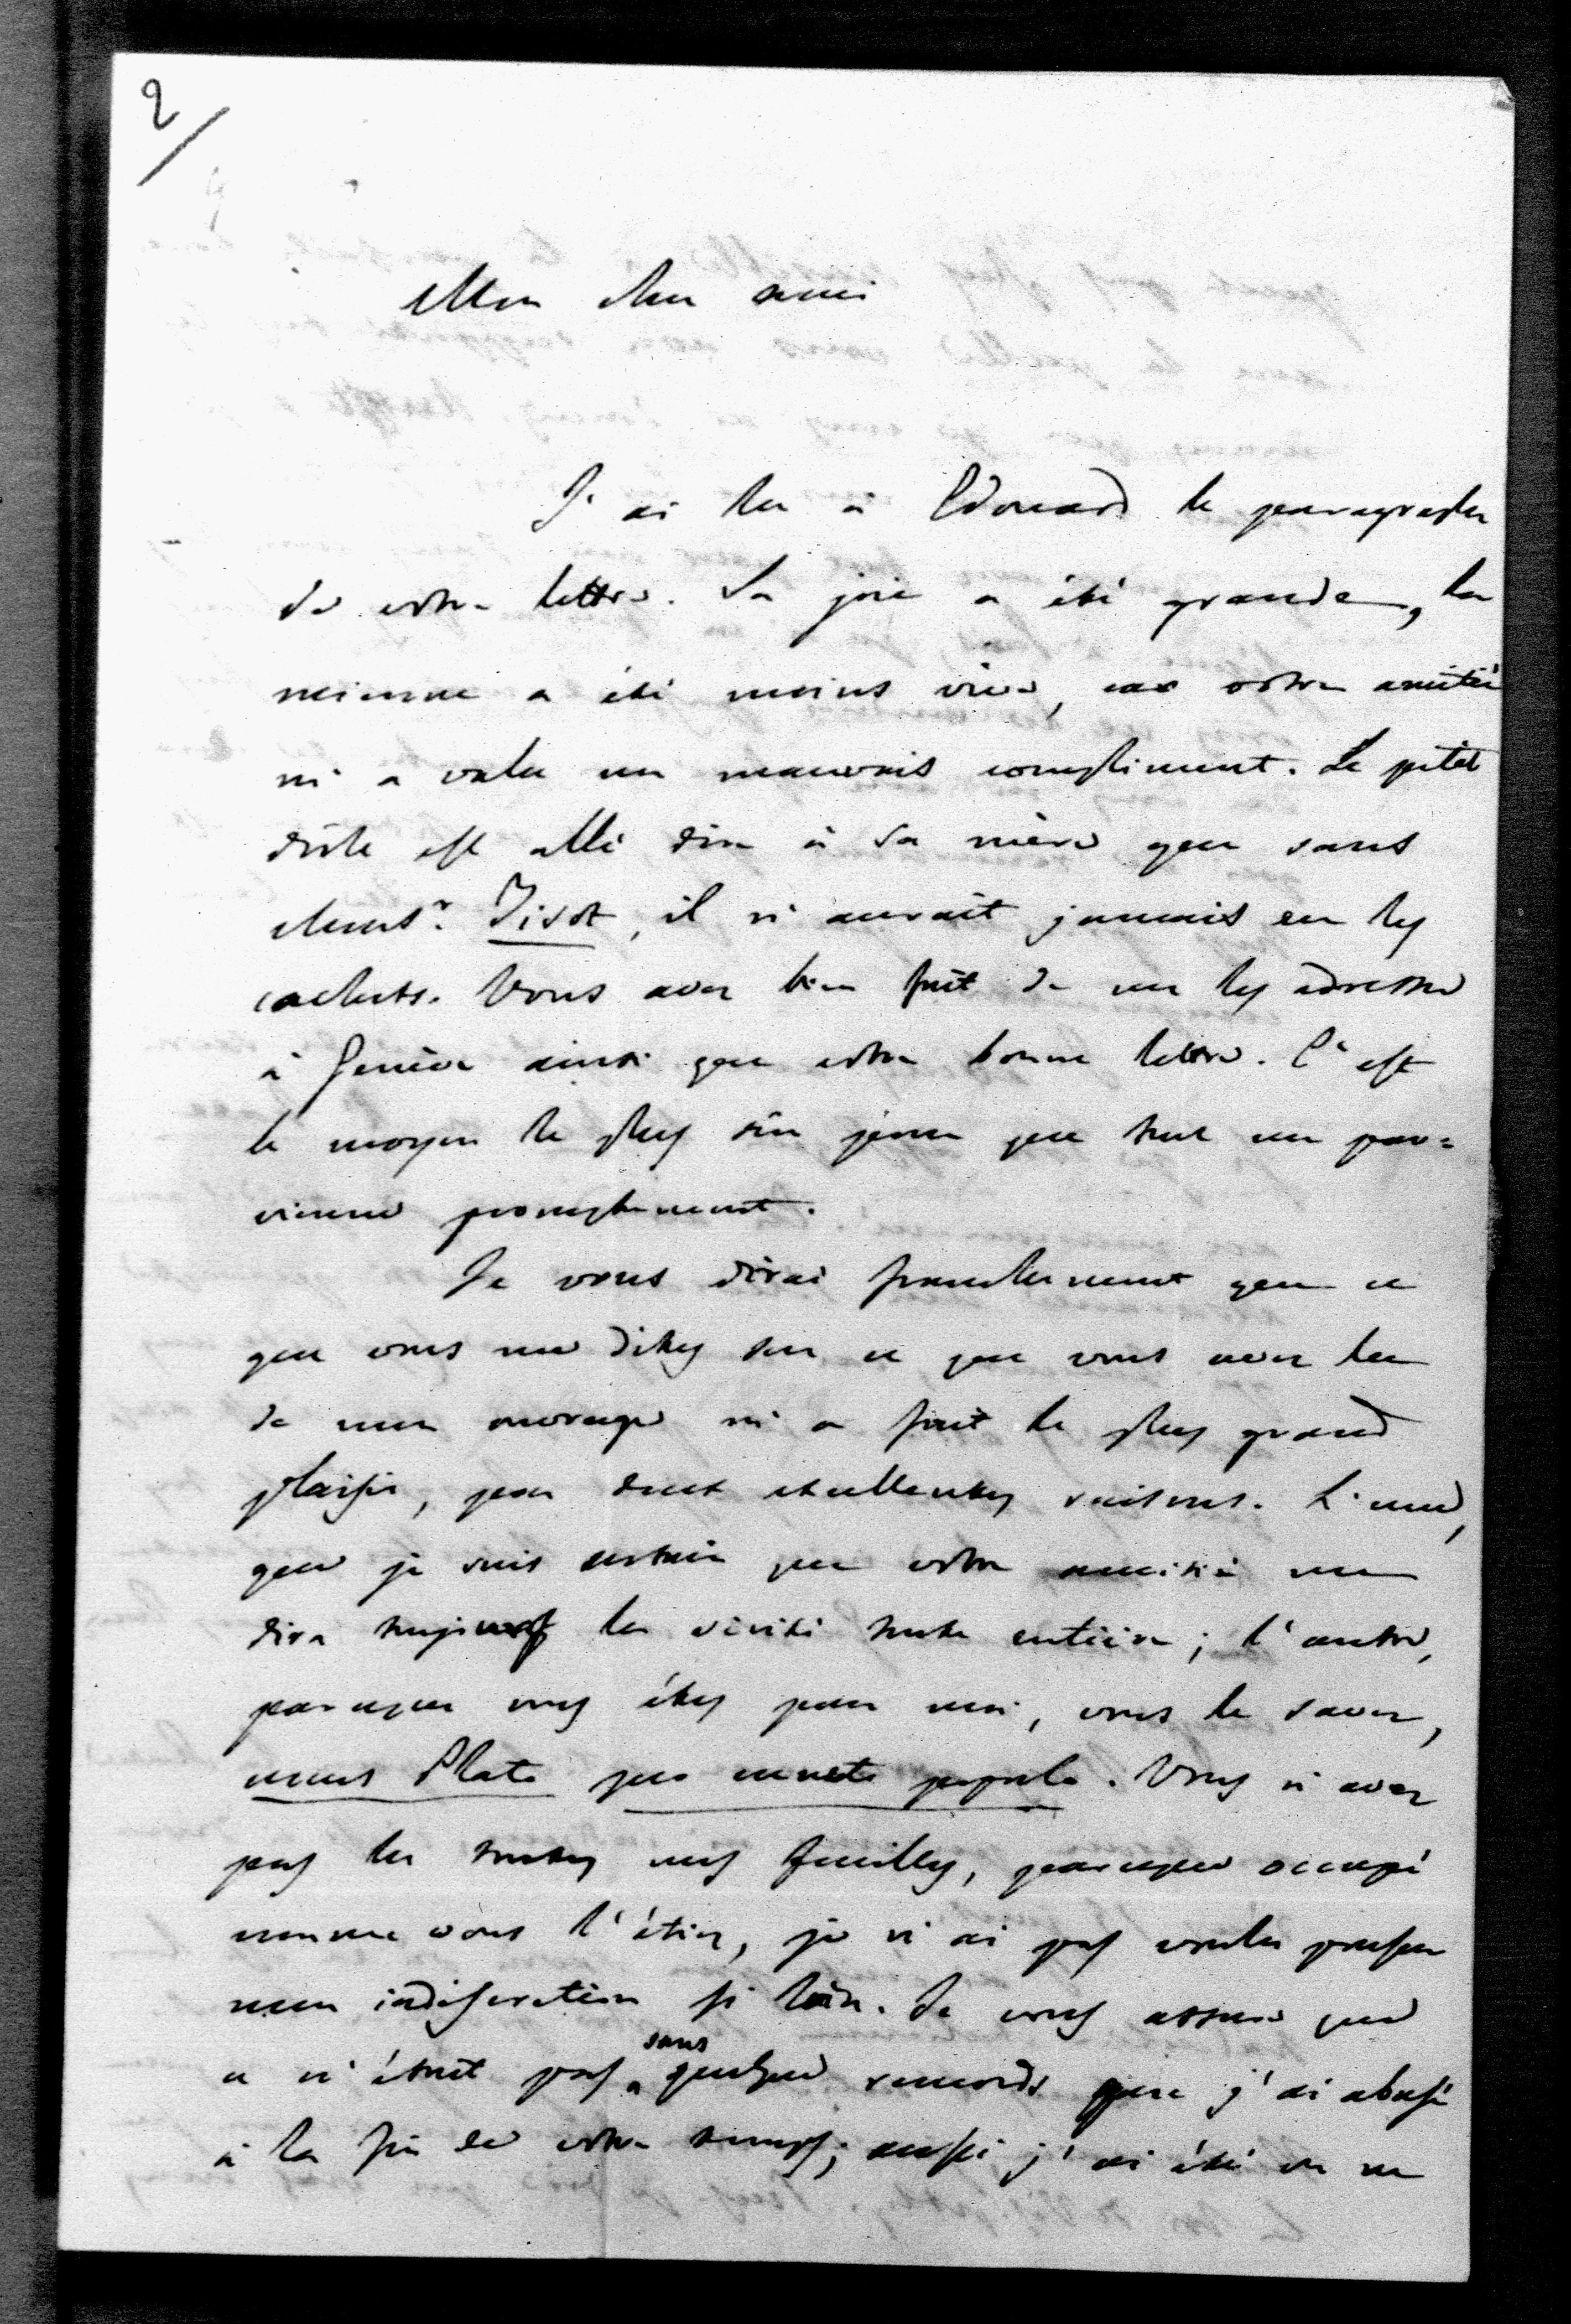 2
Mon cher ami
J'ai lu à Edouard le paragraphe
de votre lettre. Sa joie a été grande, la
mienne a été moins vive, car votre amitié
m'a valu un mauvais compliment. Le petit
drôle est allé dire à sa mère que sans
Monsr. Tisot, il n'aurait jamais eu les
cachets. Vous avez bien fait de me les adresser
à Genève ainsi que votre bonne lettre. C'est
le moyen le plus sûr pour que tout me par=
vienne promptement.
Je vous dirai franchement que ce
que vous me dites sur ce que vous avez lu
de mon ouvrage m'a fait le plus grand
plaisir, pour deux excellentes raisons. L'une,
que je suis certain que votre amitié me
dira toujours la vérité toute entière; l'autre,
parceque vous êtes pour moi, vous le savez,
unus Plato pro cuncto populo. Vous n'avez
pas lu toutes mes feuilles, parceque occupé
comme vous l'étiez, je n'ai pas voulu pousser
mon indiscrétion si loin. Je vous assure que
ce n'était pas sans quelque remords que j'ai abusé
à la fin de votre temps; aussi j'ai été on ne